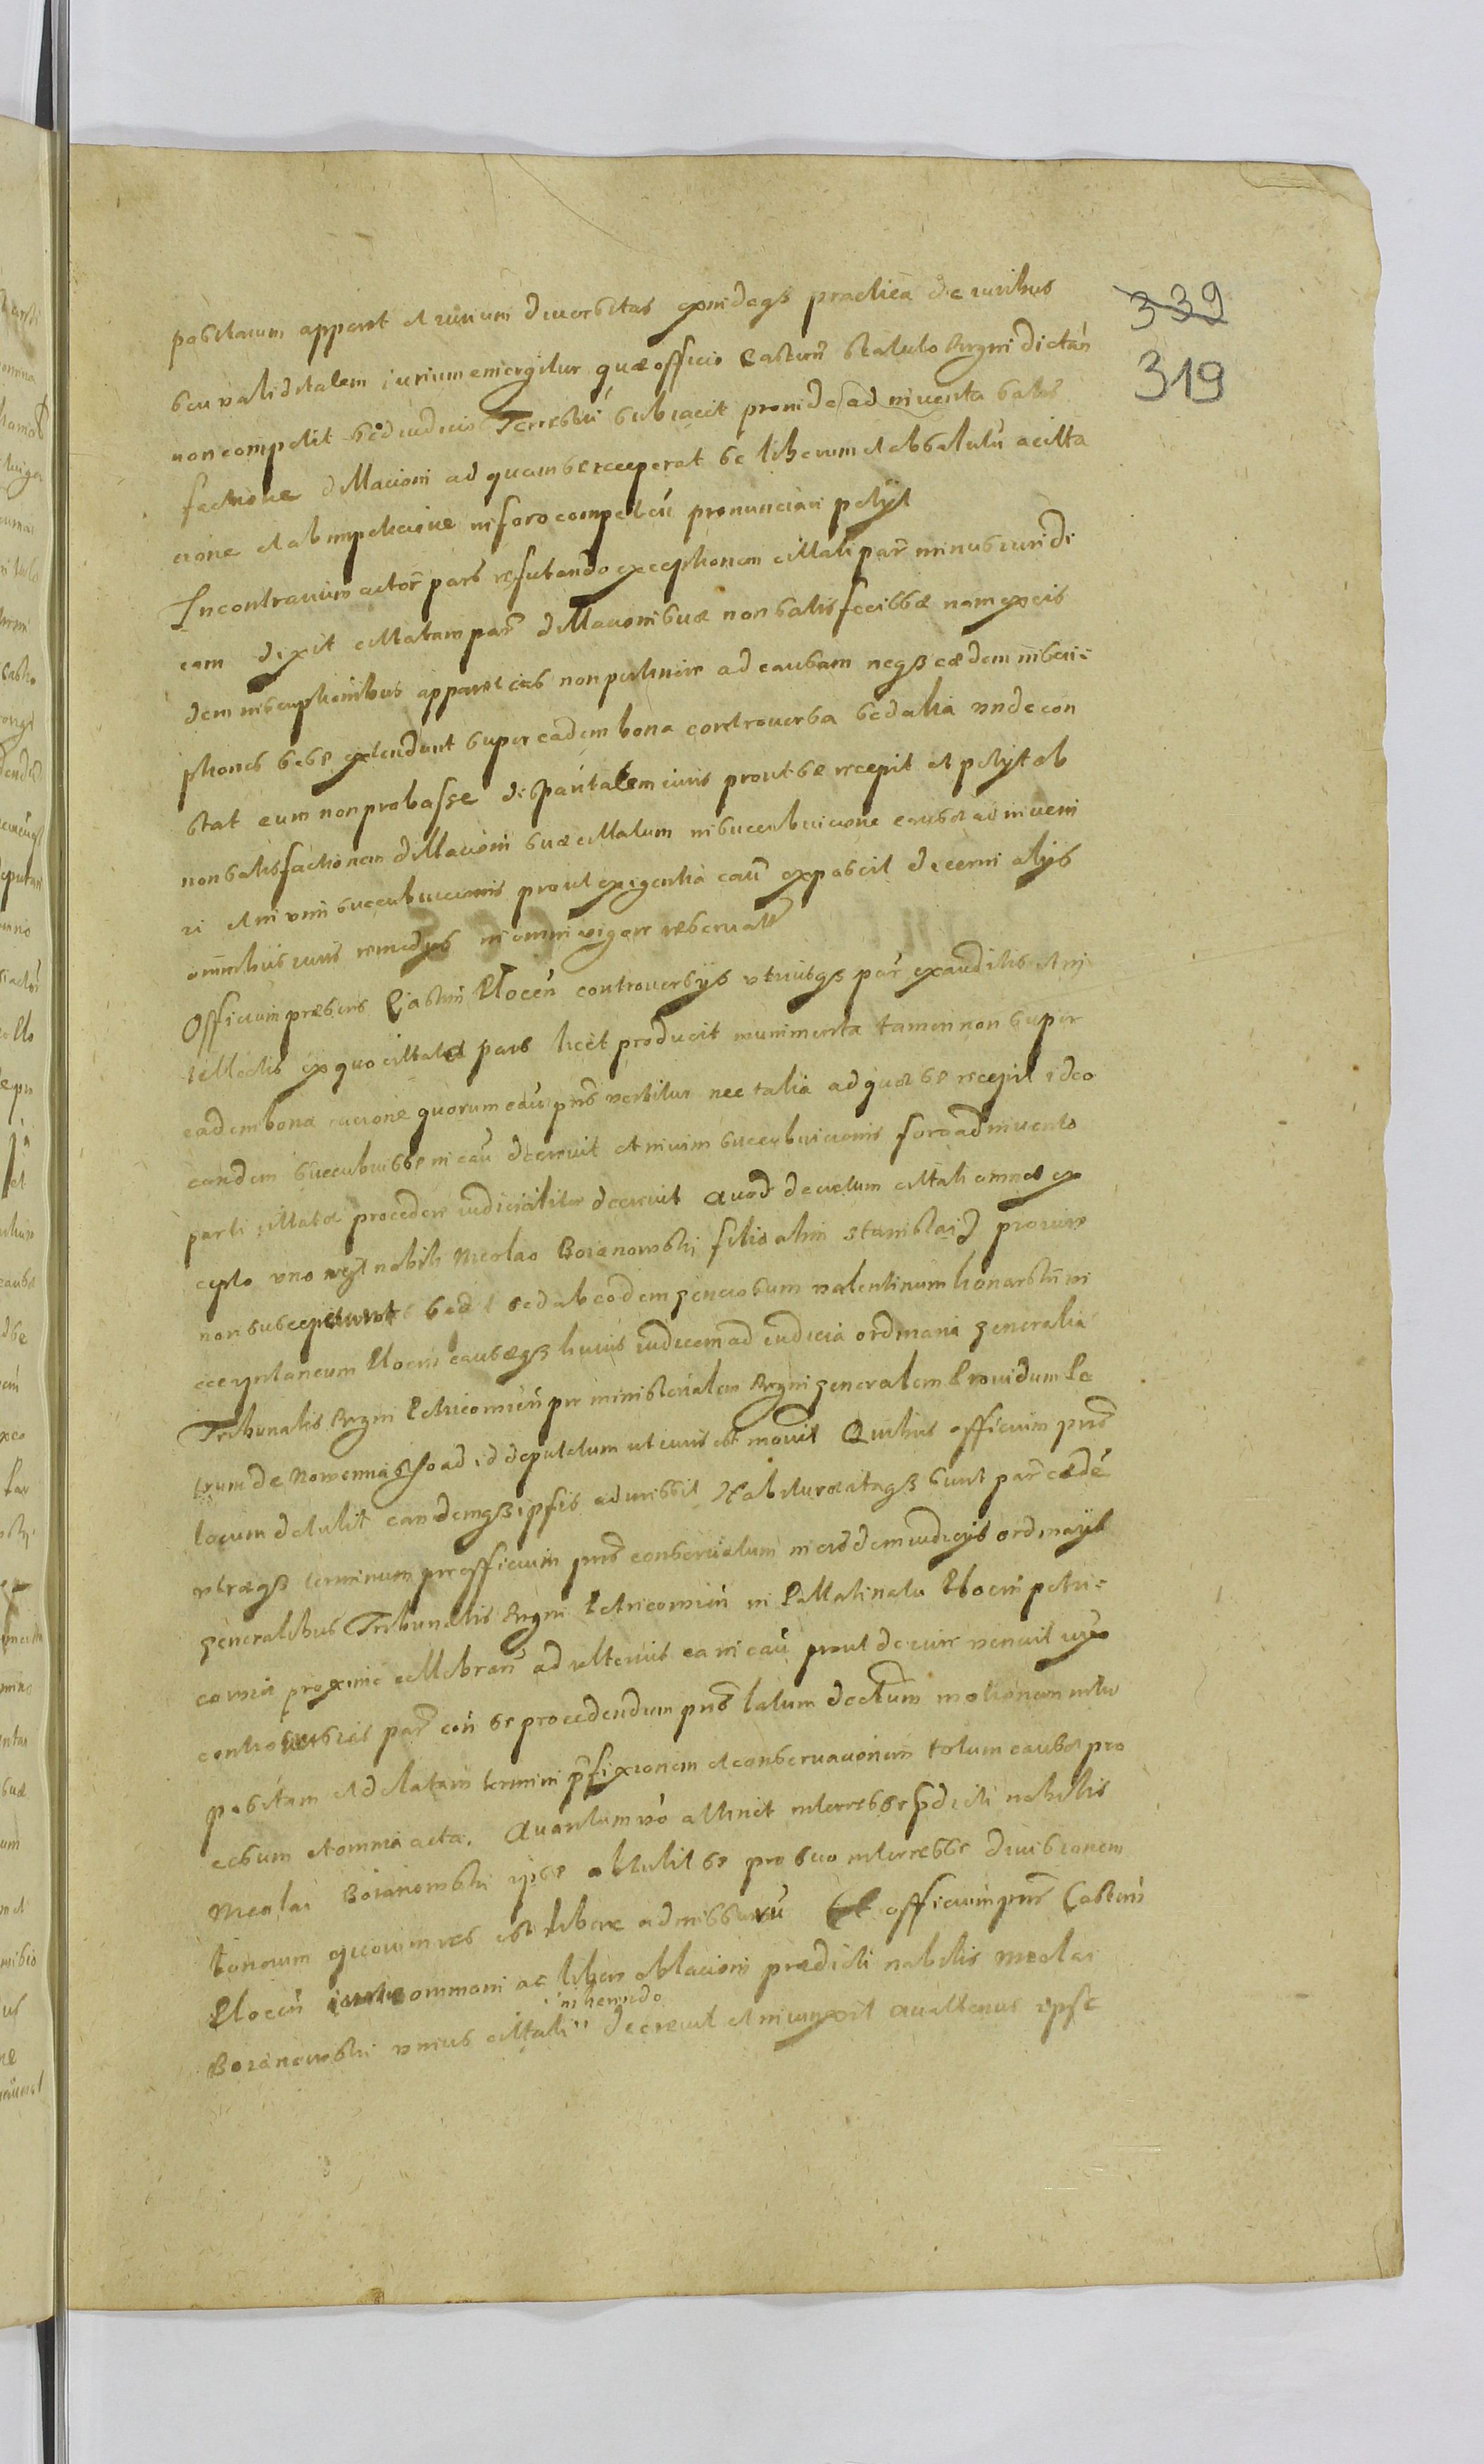 339
319
positarum apparet et iurium diuersitas exindeqз practica de iuribus
seu validitatem iurium emergitur quæ officio Castren statuto Regni dictan
non competit sed iudicio Terrestri subiacet proinde ad inuenta satis
factione dillacioni ad quam se receperat se liberum et absolutũ a citta
cione et ab impeticione in foro competeñ pronunciari petijt
In contrarium actor̃ pars refutando exceptionem cittati par̃ minus iuridi
cam dixit cittatam par̃ dillacioni suæ non satisfecisse nam ex eis
dem inscriptionibus apparet eas non pertinere ad causam neqз eædem inscri=
ptiones sese extendunt super eadem bona controuersa sed alia vnde con
stat eum non probasse disparitatem iuris prout se recepit et petijt ob
non satisfactionem dillacioni suæ cittatum in succubuicione causæ adinueni
ri et in vim succubuicionis prout exigentia cau̅ exposcit decerni alijs
omnibus iuris remedijs in omni vigore reseruat̃
Officium præsens Castren̄ Plocen̄ controuersijs vtriusqз par̃ exauditis et in
tellectis ex quo cittata pars licet producit munimenta tamen non super
eadem bona racione quorum cau̅ pn̄s vertitur nec talia ad quæ se recepit ideo
eandem succubuisse in cau̅ decreuit et in vim succubuicionis foro adinuento
parti cittatæ procedere iudicialiter decreuit Quod decretum cittati omnes ex
cepto vno nempt nobili Nicolao Boianowski filio olim Stanislai prouire
non susceperunt sed ab eodem generosum Valentinum
capitaneum Plocen causæqз huius iudicem ad iudicia ordinaria generalia
Tribunalis Regni Petricouien̄ per ministerialem Regni generalem Prouidum Pe
trum de Nowemiasto ad id deputatum ut iuris est mouit Quibus officium pn̄s
locum detulit eandemqз ipsis admissit Habituræ itaqз sunt par̃ eædẽ
vtræqз terminum per officium pn̄s conseruatum in eisdem iudicijs ordinarijs
generalibus Tribunalis Regni Petricouien̄ in Pallatinatu Plocen̄ petri=
couiæ proxime cellebran̄ ad vlterius ea in cau̅ prout de iure venerit iuxta
controuersias par̃ eañ se procedendum pn̄s latum decretum motionem inter
positam et delatam termini p̄fixionem et conseruacionem totum causæ pro
cessum et omnia acta. Quantum vo attinet interesse p̄dicti nobilis
Nicolai Boianowski ipse obtulit se pro suo interesse diuisionem
bonorum quorum res est libere admissurũ Et officium pn̄s Castren̄
Plocen̄ iuri communi ac liberæ oblacioni prædicti nobilis Nicolai
inhærendo
Boianowski vnius cittati decreuit et iniunxit quattenus ipse